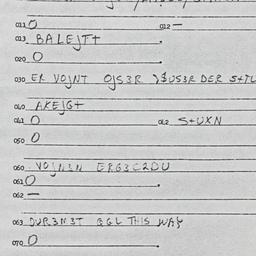 011 0 012 —
013 BALEJT+
020 0
030 ER VOJNT OJS3R DER
040 AKEJG+
041 0 042 S+UXN
050 0
060 VOJN3N ERG3C2DU
061 0
062 —
063 DUR3N3T BGL THIS WAY
070 0